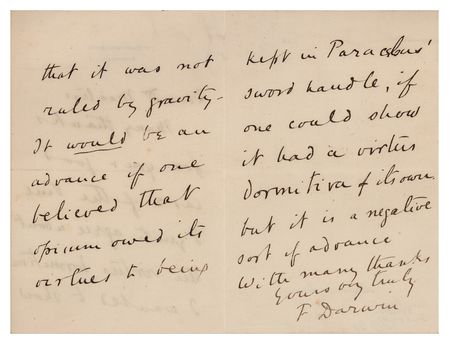 that it was not
ruled by gravity.
It would be an
advance if one
believed that
opium owed its
virtues to being
kept in Paracelsus'
sword handle, if
one could show
it had a virtus
Dormitiva of its own
but it is a negative
sort of advance
With many thanks
Yours very truly
F Darwin